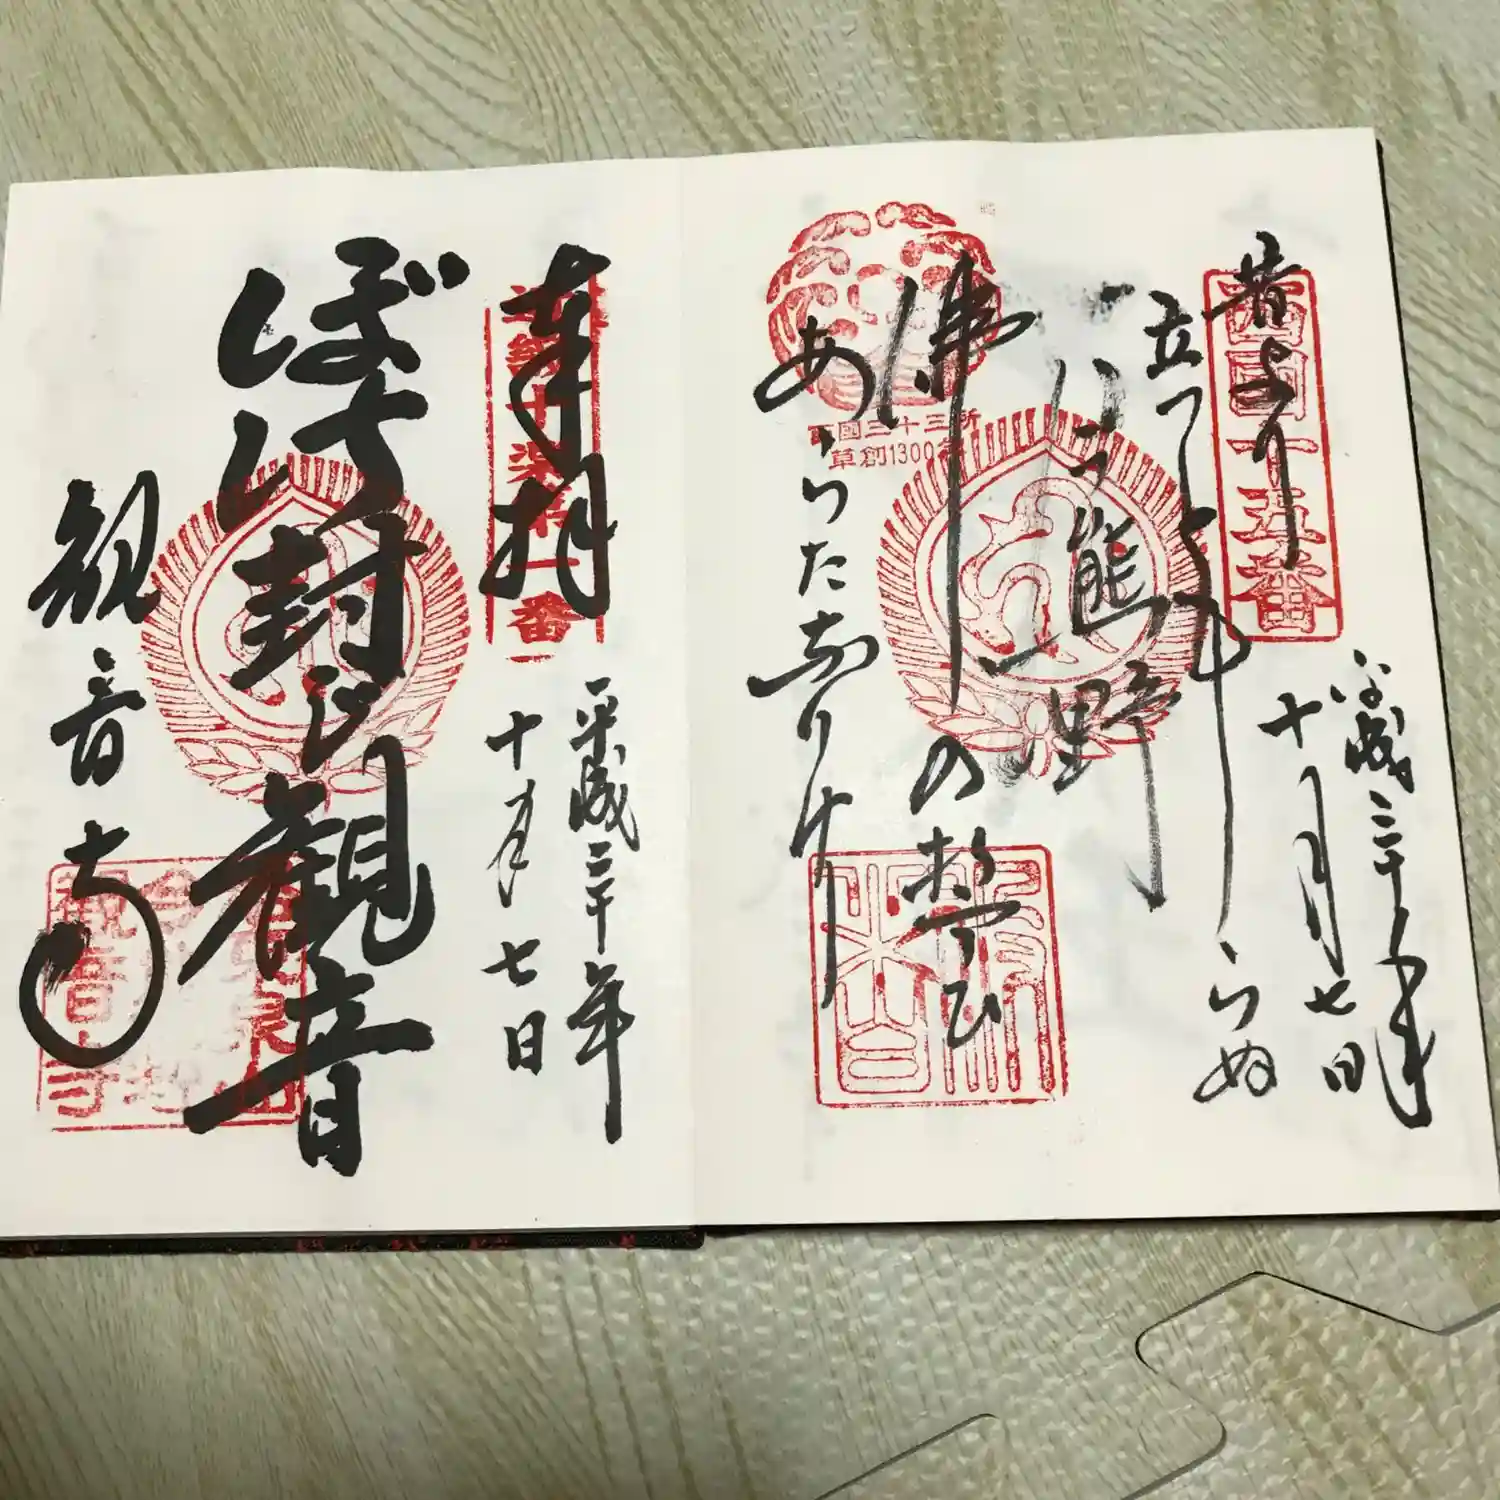 西国十五番
平成三十年
十月七日
昔より
立つともしらぬ
熊野
佛の誓ひ
あらたなりけり
西國三十三所
草創1300年
奉拝
平成三十年
十月七日
ぼけ封じ観音
観音寺